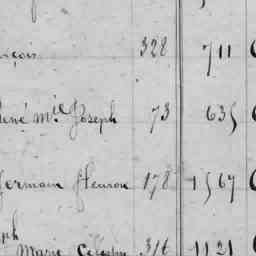 nçois 328 711
René Mie Joseph 73 635
Germain fleuron 178 1567
ph
Marie Celestin 316 1121